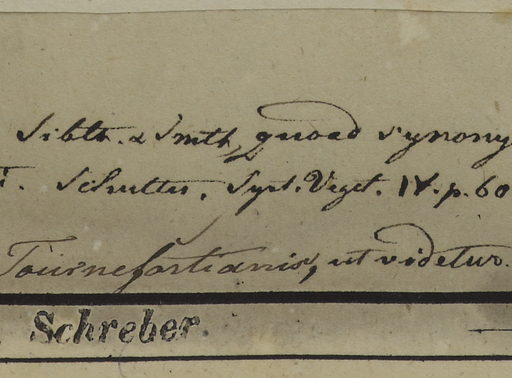 Sibth. & Smith, quoad synony
Schultes. Syst. Veget. IV. p. 60
Tournefortianis, ut videtur.
Schreber.